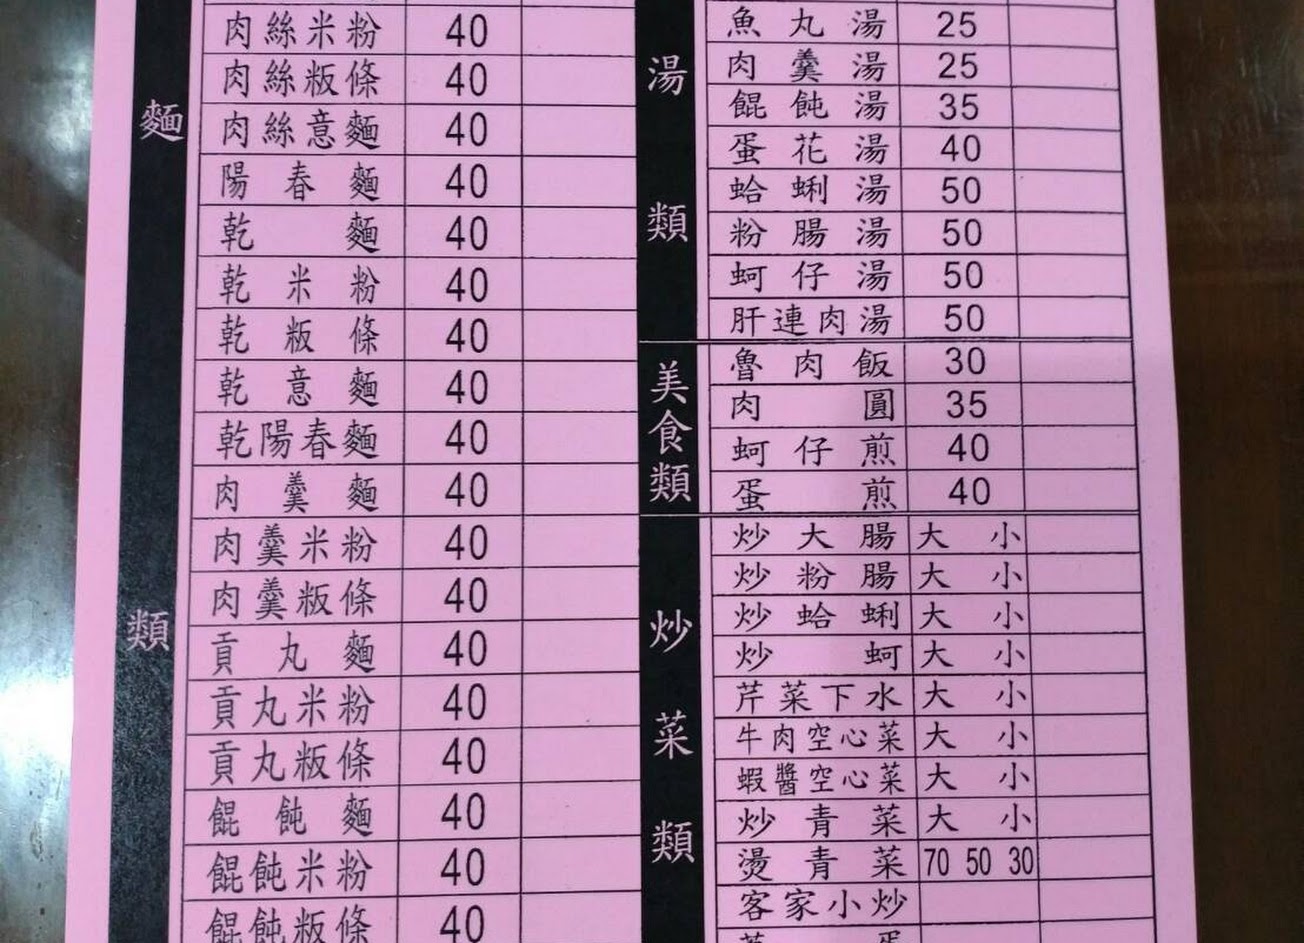 麵類
肉絲米粉 40
肉絲粄條 40
肉絲意麵 40
陽春麵 40
乾麵 40
乾米粉 40
乾粄條 40
乾意麵 40
乾陽春麵 40
肉羹麵 40
肉羹米粉 40
肉羹粄條 40
貢丸麵 40
貢丸米粉 40
貢丸粄條 40
餛飩麵 40
餛飩米粉 40
餛飩粄條 40
湯類
魚丸湯 25
肉羹湯 25
餛飩湯 35
蛋花湯 40
蛤蜊湯 50
粉腸湯 50
蚵仔湯 50
肝連肉湯 50
美食類
魯肉飯 30
肉圓 35
蚵仔煎 40
蛋煎 40
炒菜類
炒大腸 大 小
炒粉腸 大 小
炒蛤蜊 大 小
炒蚵 大 小
芹菜下水 大 小
牛肉空心菜 大 小
蝦醬空心菜 大 小
炒青菜 大 小
燙青菜 70 50 30
客家小炒